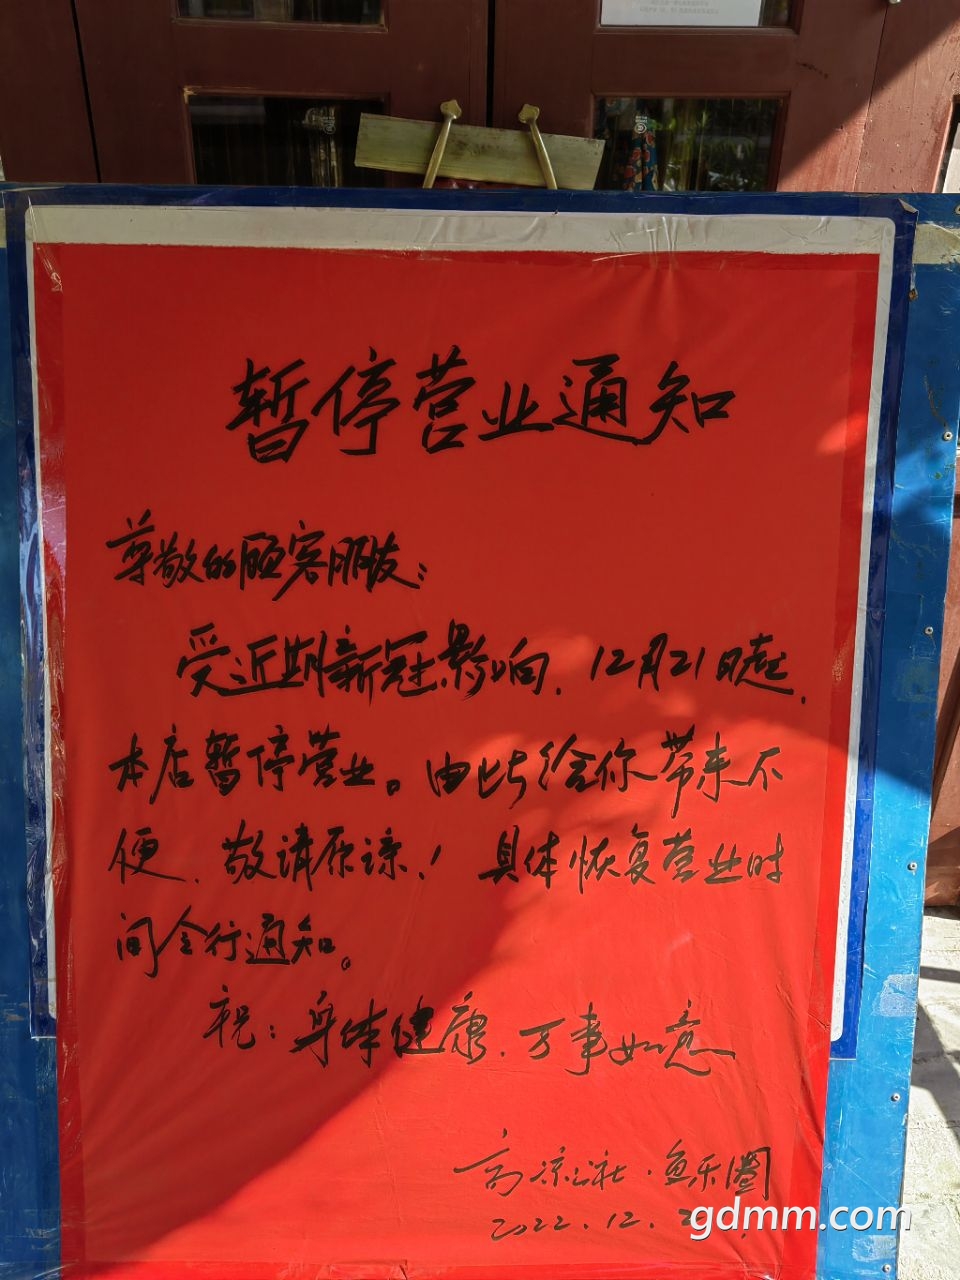 暂停营业通知
尊敬的顾客朋友:
受近期新冠影响,12月21日起,
本店暂停营业。由此给你带来不
便,敬请原谅!具体恢复营业时
间会行通知。
祝:身体健康,万事如意
高凉社·鱼乐圈
2022.12.2
gdmm.com